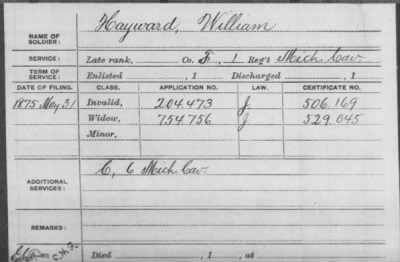 NAME OF SOLDIER: Hayward, William
SERVICE: Late rank, Co. F, 1 Reg't Mich. Cav.
TERM OF SERVICE: Enlisted , 1 Discharged , 1
DATE OF FILING. CLASS. APPLICATION NO. LAW. CERTIFICATE NO.
1875 May 31 Invalid, 204.473 J 506.169
Widow, 754.756 J 529.045
Minor,
ADDITIONAL SERVICES: C, 6 Mich. Cav.
REMARKS:
Died , 1 , at